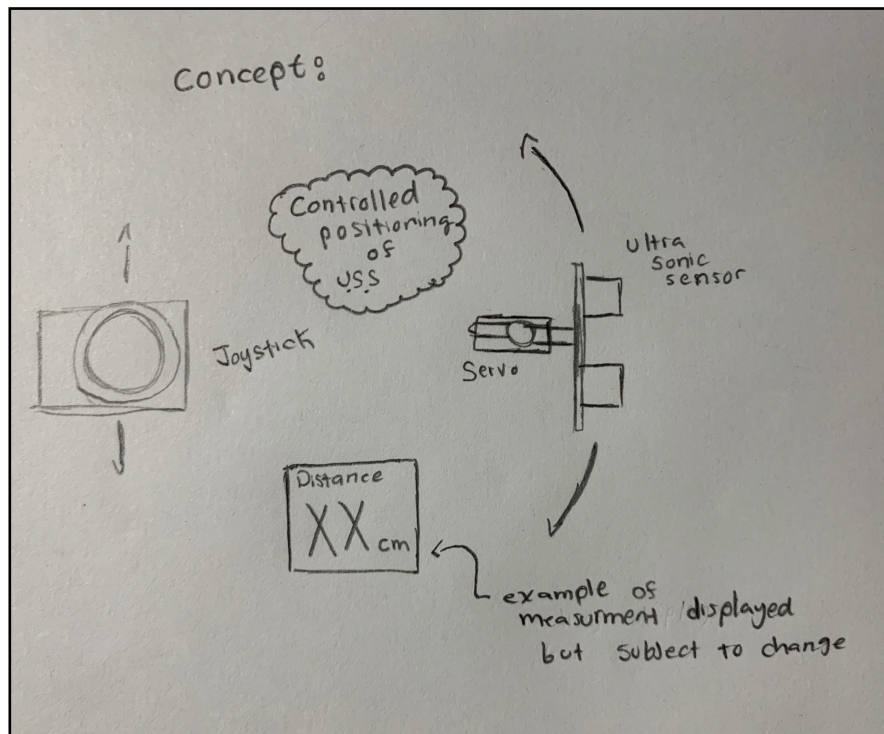 Concept:
Controlled
positioning
of
U.S.S
Ultra
sonic
sensor
Joystick
Servo
Distance
XX cm
example of
measurment displayed
but subject to change